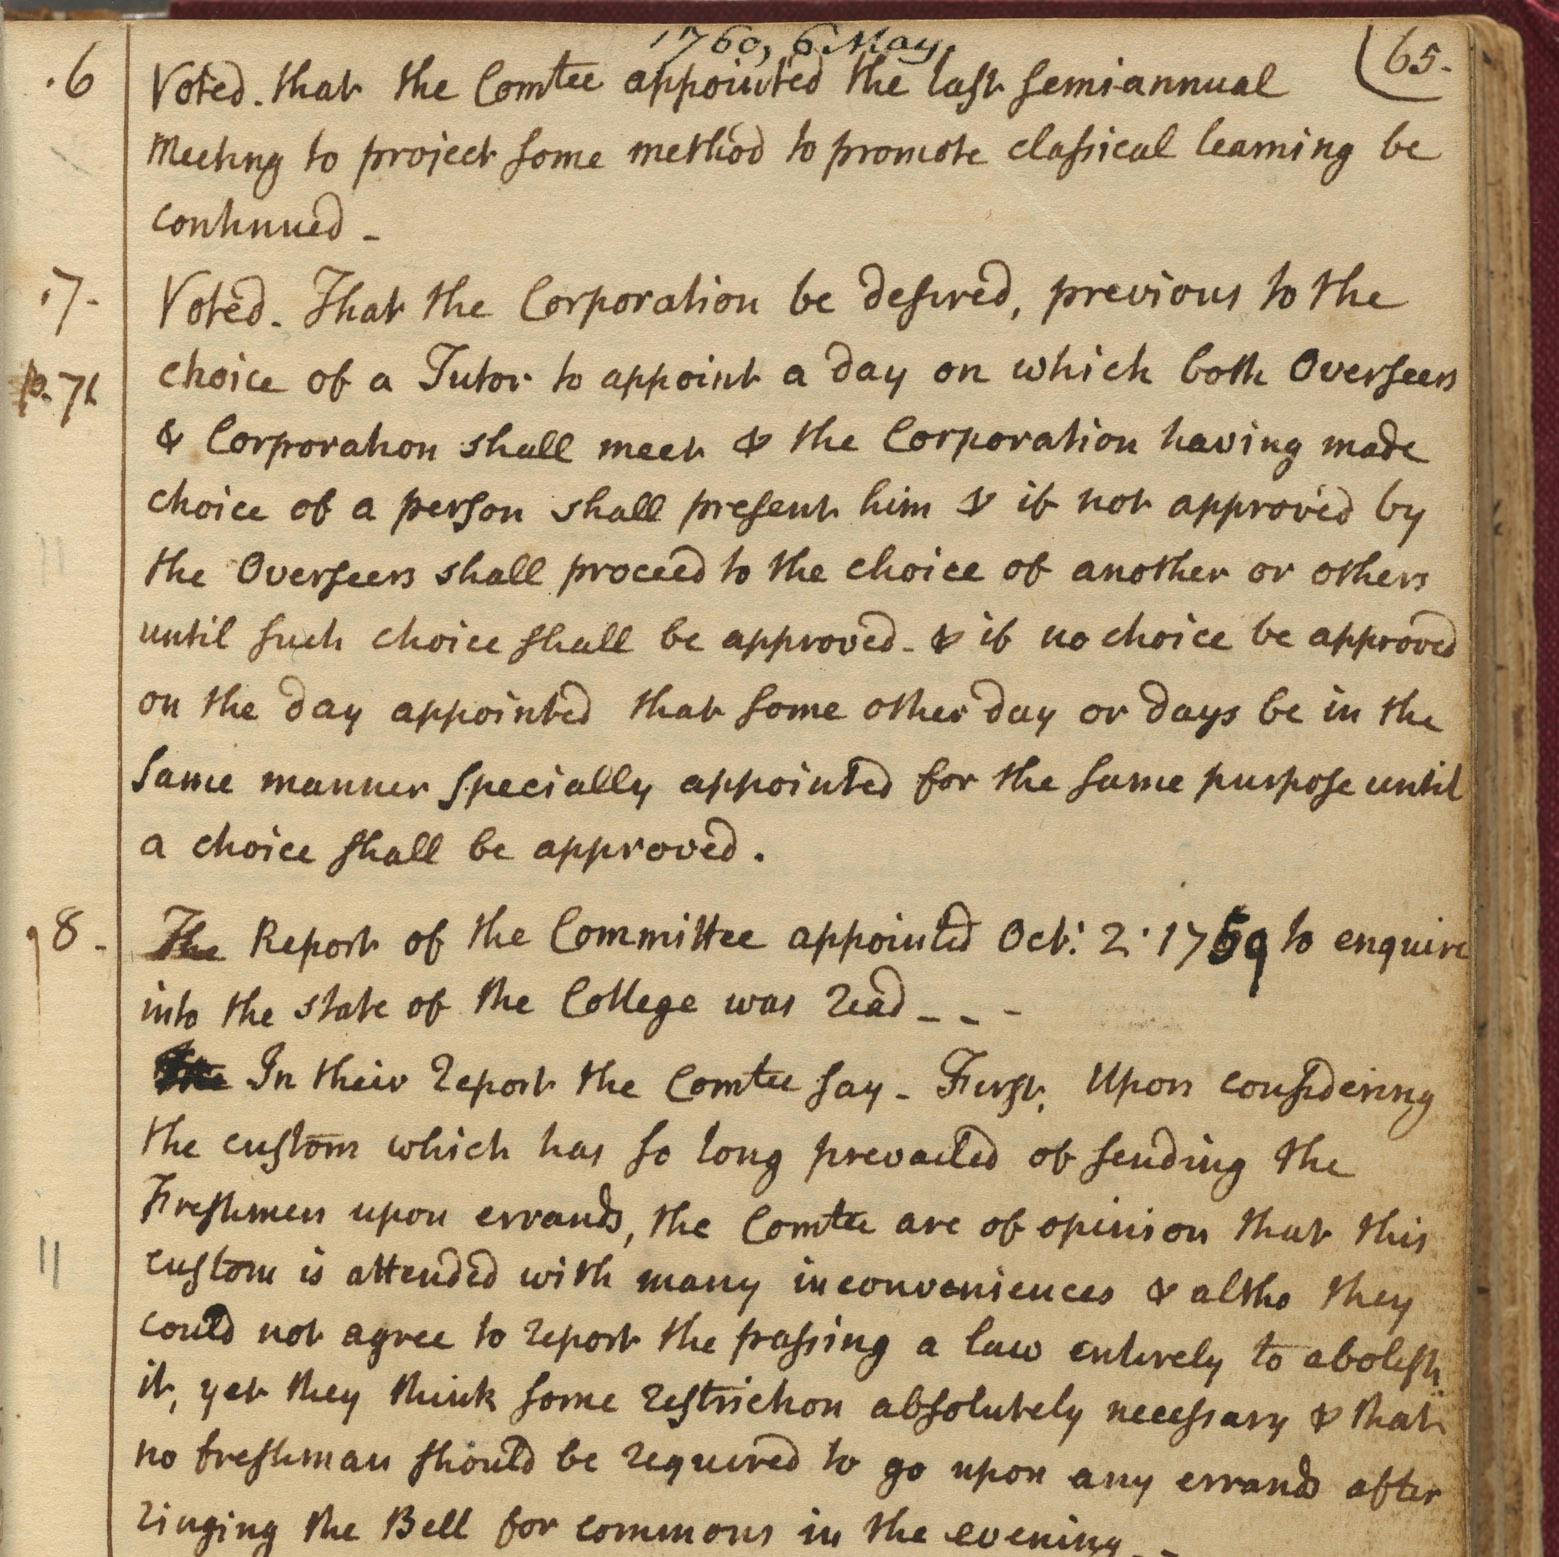 1760, 6 May.
65.
.6 Voted. that the Comtee appointed the last semiannual
Meeting to project some method to promote classical learning be
continued -
.7- Voted. That the Corporation be desired, previous to the
p. 71 choice of a Tutor to appoint a day on which both Overseers
& Corporation shall meet & the Corporation having made
choice of a person shall present him & if not approved by
the Overseers shall proceed to the choice of another or others
until such choice shall be approved - & if no choice be approved
on the day appointed that some other day or days be in the
same manner specially appointed for the same purpose until
a choice shall be approved.
8- The Report of the Committee appointed Oct: 2. 1759 to enquire
into the state of the College was read - - -
In their Report the Comtee say - First, Upon considering
the custom which has so long prevailed of sending the
Freshmen upon errands, the Comtee are of opinion that this
custom is attended with many inconveniences & altho they
could not agree to report the passing a law entirely to abolish
it, yet they think some restriction absolutely necessary & that
no freshman should be required to go upon any errands after
ringing the Bell for commons in the evening - -